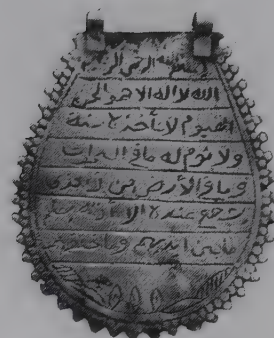 الرحمن الر
الله لا اله الا هو الحى
القيوم لا تأخذه سنة
ولا نوم له ما فى السموات
وما فى الأرض من ذا الذى
يشفع عنده الا باذنه يعلم
ما بين ايديهم وما خلفهم